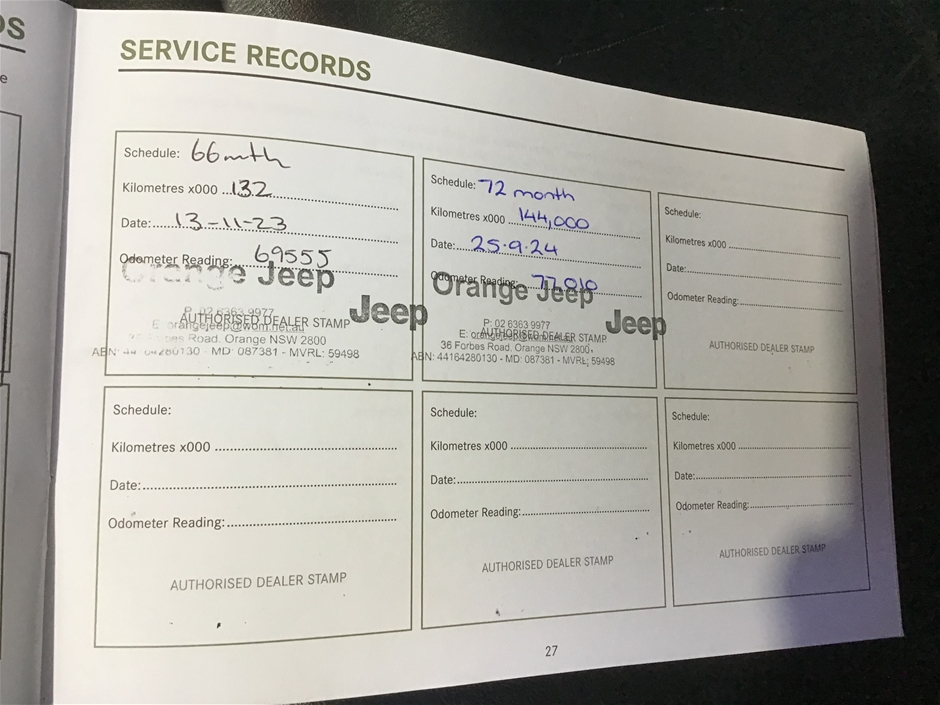 SERVICE RECORDS
Schedule: 66mth
Kilometres x000 132
Date: 13-11-23
Odometer Reading: 69555
Orange Jeep
Jeep
P: 02 6363 9977
AUTHORISED DEALER STAMP
E: orangejeep@wbm.net.au
Forbes Road, Orange NSW 2800
ABN: 44 280130 - MD: 087381 - MVRL: 59498
Schedule: 72 month
Kilometres x000 144,000
Date: 25.9.24
Odometer Reading: 77,010
Orange Jeep
Jeep
P: 02 6363 9977
AUTHORISED DEALER STAMP
E: orangejeep@wbm.net.au
36 Forbes Road, Orange NSW 2800
ABN: 44164280130 - MD: 087381 - MVRL: 59498
Schedule:
Kilometres x000
Date:
Odometer Reading:
AUTHORISED DEALER STAMP
Schedule:
Kilometres x000
Date:
Odometer Reading:
AUTHORISED DEALER STAMP
Schedule:
Kilometres x000
Date:
Odometer Reading:
AUTHORISED DEALER STAMP
Schedule:
Kilometres x000
Date:
Odometer Reading:
AUTHORISED DEALER STAMP
27